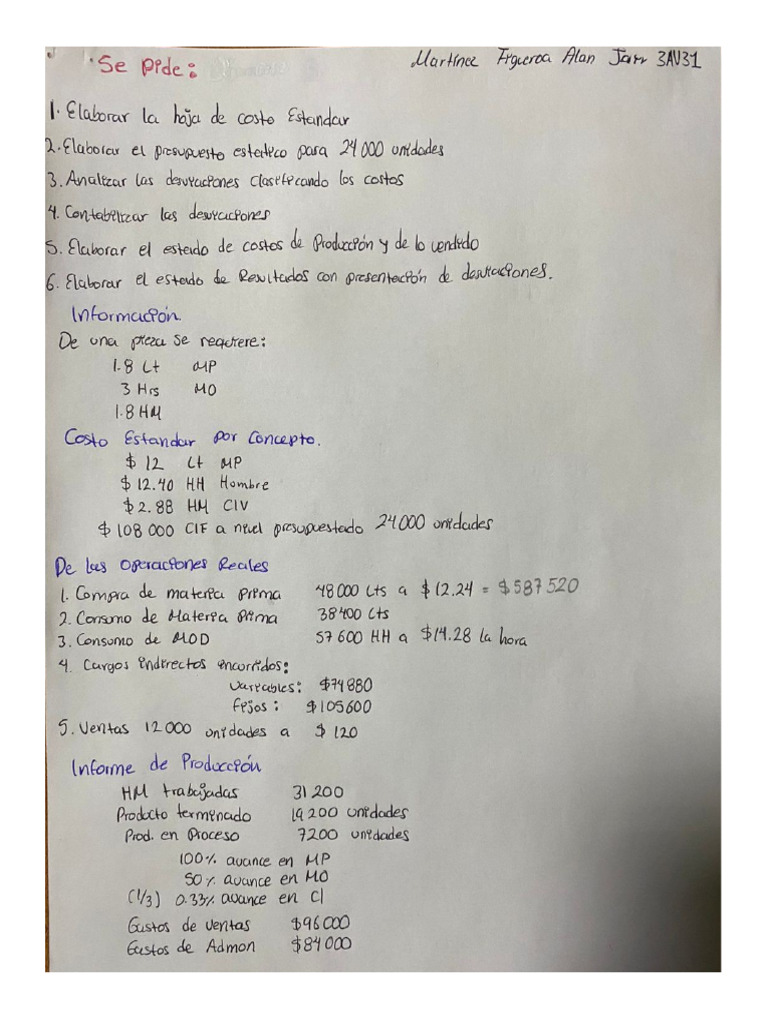 Se Pide:
Martínez Figueroa Alan Jair 3AV31
1. Elaborar la hoja de costo Estandar
2. Elaborar el presupuesto estatico para 24 000 unidades
3. Analizar las desviaciones clasificando los costos
4. Contabilizar las desviaciones
5. Elaborar el estado de costos de Producción y de lo vendido
6. Elaborar el estado de Resultados con presentación de desviaciones.
Información.
De una pieza se requiere:
1.8 Lt MP
3 Hrs MO
1.8 HM
Costo Estandar por Concepto.
$ 12 Lt MP
$ 12.40 HH Hombre
$ 2.88 HM CIV
$ 108 000 CIF a nivel presupuestado 24 000 unidades
De las Operaciones Reales
1. Compra de materia Prima 48 000 Lts a $ 12.24 = $ 587 520
2. Consumo de Materia Prima 38 400 Lts
3. Consumo de MOD 57 600 HH a $14.28 la hora
4. Cargos indirectos incurridos:
Variables: $74 880
Fijos: $105 600
5. Ventas 12 000 unidades a $ 120
Informe de Producción
HM trabajadas 31 200
Producto terminado 19 200 unidades
Prod. en Proceso 7200 unidades
100% avance en MP
50% avance en MO
(1/3) 0.33% avance en CI
Gastos de ventas $96 000
Gastos de Admon $84 000